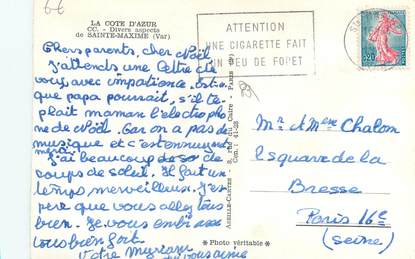 LA COTE D'AZUR
CC. - Divers aspects
de SAINTE-MAXIME (Var)
Chers parents, cher Noël
J'attends une lettre de
vous, avec impatience. Est-ce
que papa pourrait, s'il te
plait maman l'electropho
ne de Noël. Car on a pas de
musique et c'est ennuyant
J'ai beaucoup de
coups de soleil. Il fait un
temps merveilleux. J'es
père que vous allez tous
bien. Je vous embrasse
tous bien fort.
Votre Myriam
qui vous aime
ATTENTION
UNE CIGARETTE FAIT
UN FEU DE FORET
0,20
ACHILLE-CARTES - 8, rue du Caire - PARIS (2e)
Com. : 41-28
* Photo véritable *
Mr et Mme Chalon
1 square de la
Bresse
Paris 16e
(Seine)